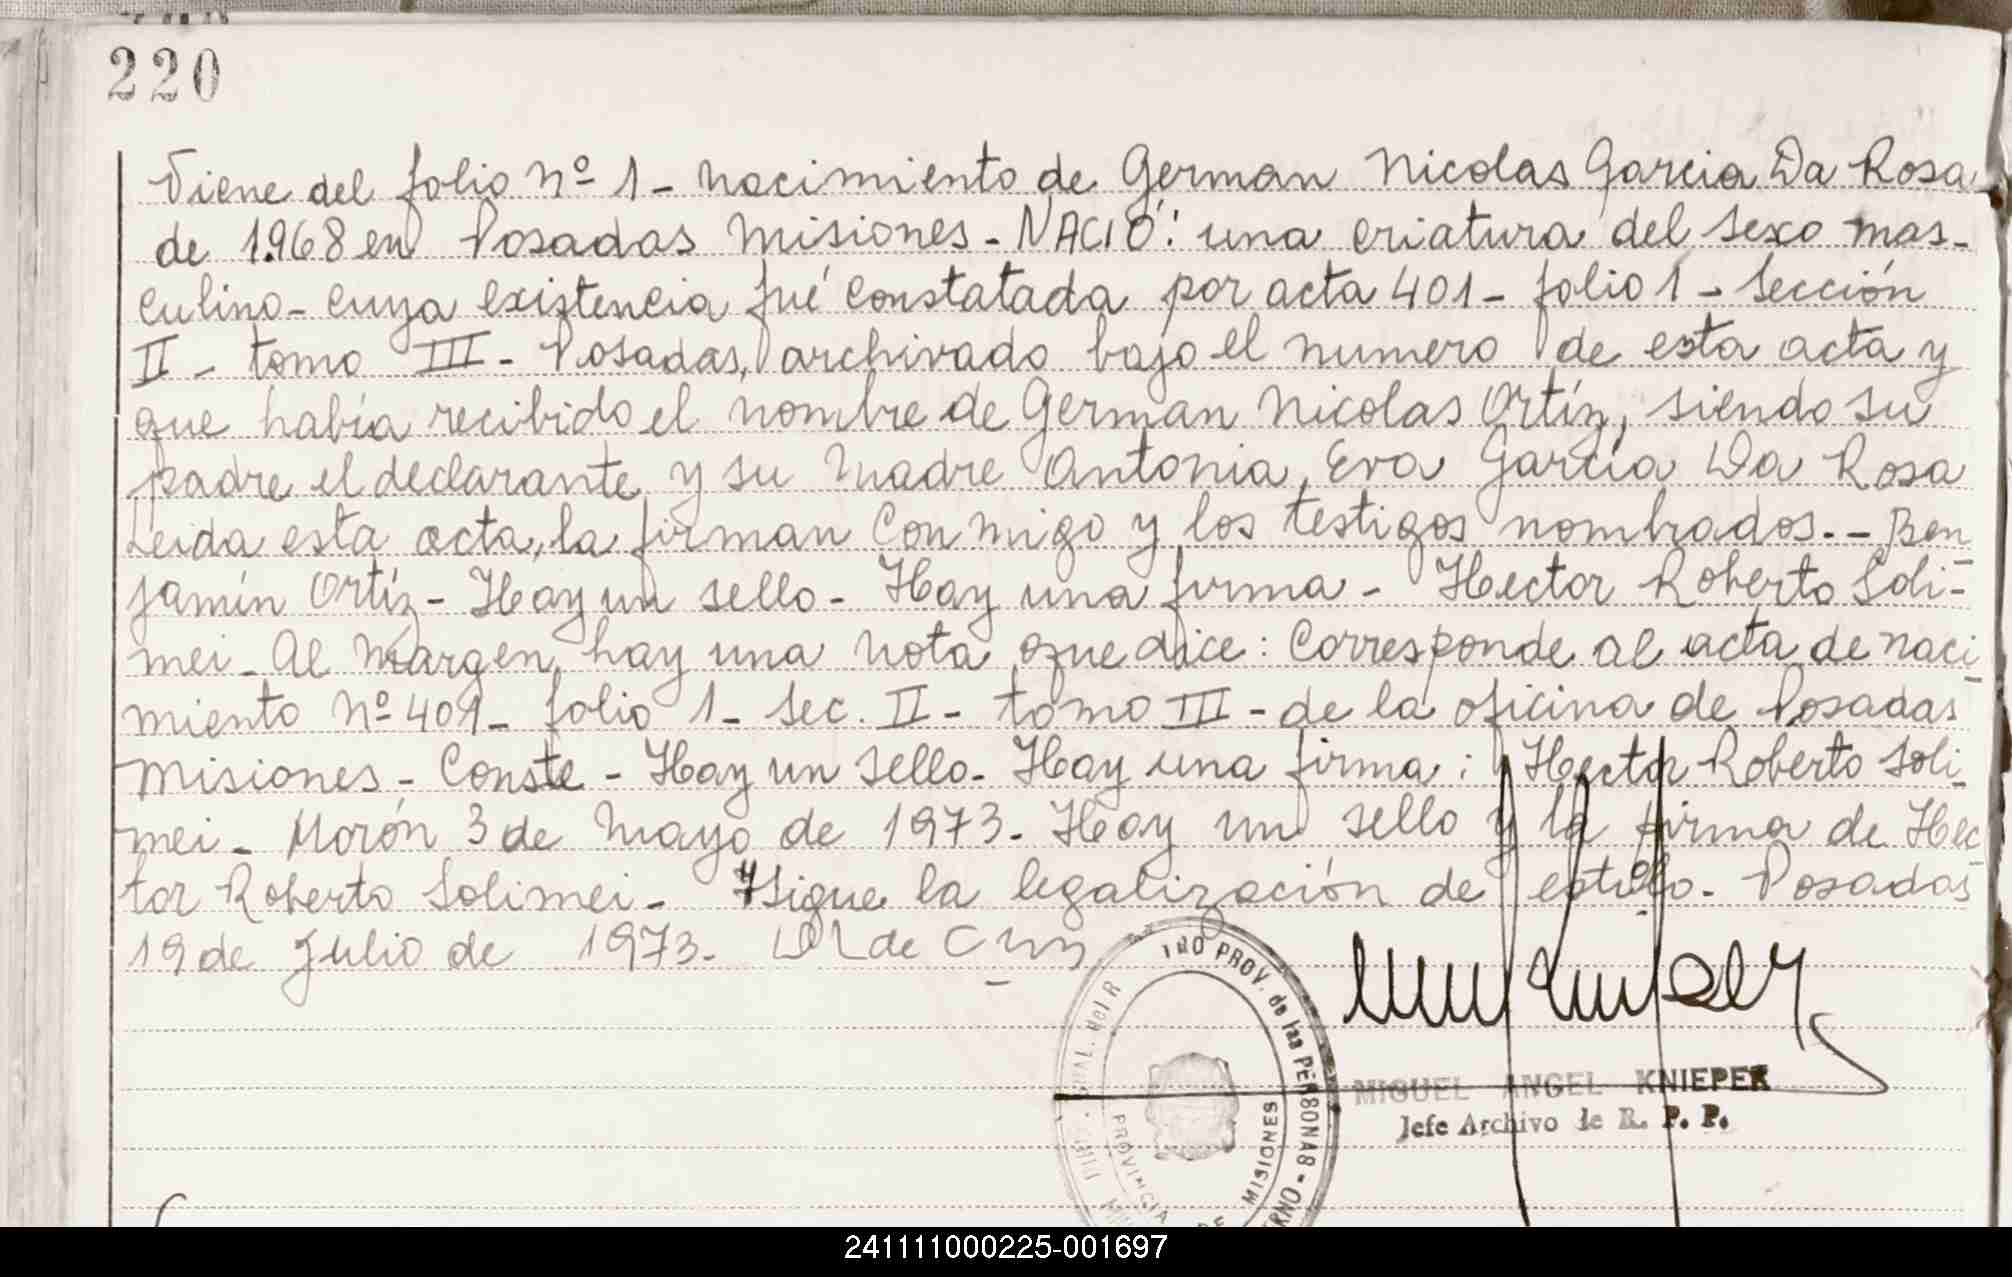 220
Viene del folio Nº 1 - nacimiento de German Nicolas Garcia Da Rosa
de 1.968 en Posadas Misiones - NACIÓ: una criatura del sexo mas-
culino - cuya existencia fué constatada por acta 401 - folio 1 - Sección
II - tomo III - Posadas, archivado bajo el numero de esta acta y
que había recibido el nombre de German Nicolas Ortíz, siendo su
padre el declarante y su madre Antonia Eva García Da Rosa
Leida esta acta, la firman conmigo y los testigos nombrados. - Ben
jamín Ortíz - Hay un sello - Hay una firma - Hector Roberto Soli-
mei - Al margen hay una nota que dice: Corresponde al acta de naci
miento Nº 401 - folio 1 - Sec. II - tomo III - de la oficina de Posadas
Misiones - Conste - Hay un sello - Hay una firma: Hector Roberto Soli
mei - Morón 3 de Mayo de 1973 - Hay un sello y la firma de Hec
tor Roberto Solimei - Sigue la legalización de estilo - Posadas
19 de Julio de 1973 -
PROV. de las PERSONAS
PROVINCIA DE MISIONES
MIGUEL ANGEL KNIEPER
Jefe Archivo de R. P. P.
241111000225-001697